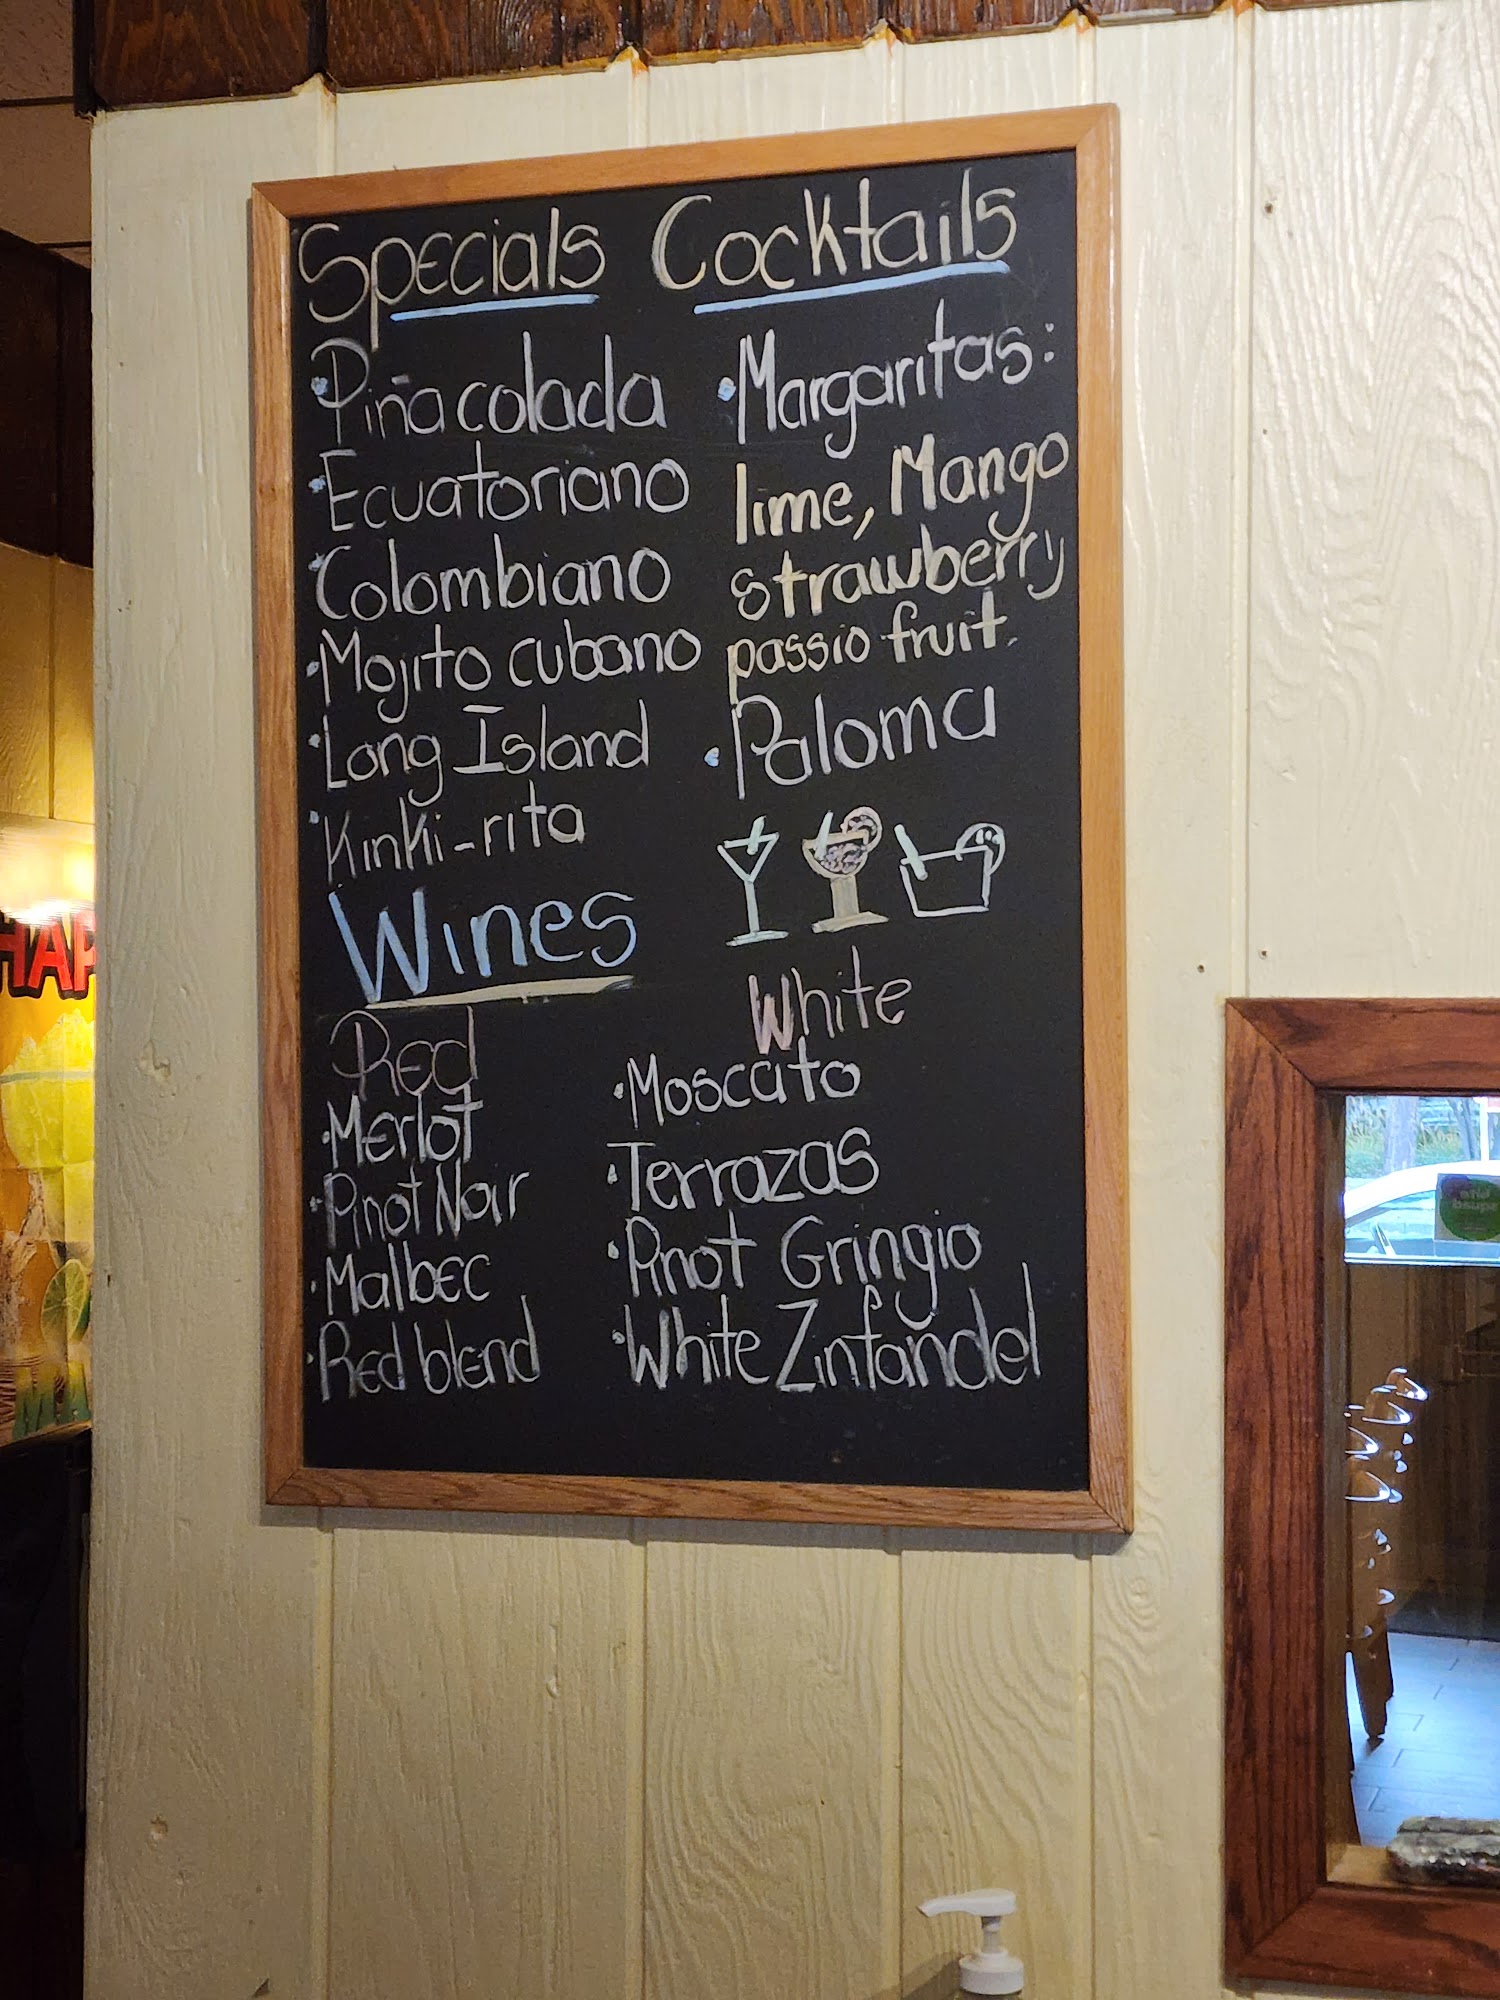 Specials Cocktails
• Piña colada
• Ecuatoriano
• Colombiano
• Mojito cubano
• Long Island
• Kinki-rita
• Margaritas:
lime, Mango
strawberry
passio fruit.
• Paloma
Wines
Red
• Merlot
• Pinot Noir
• Malbec
• Red blend
White
• Moscato
• Terrazas
• Pinot Gringio
• White Zinfandel
HAP